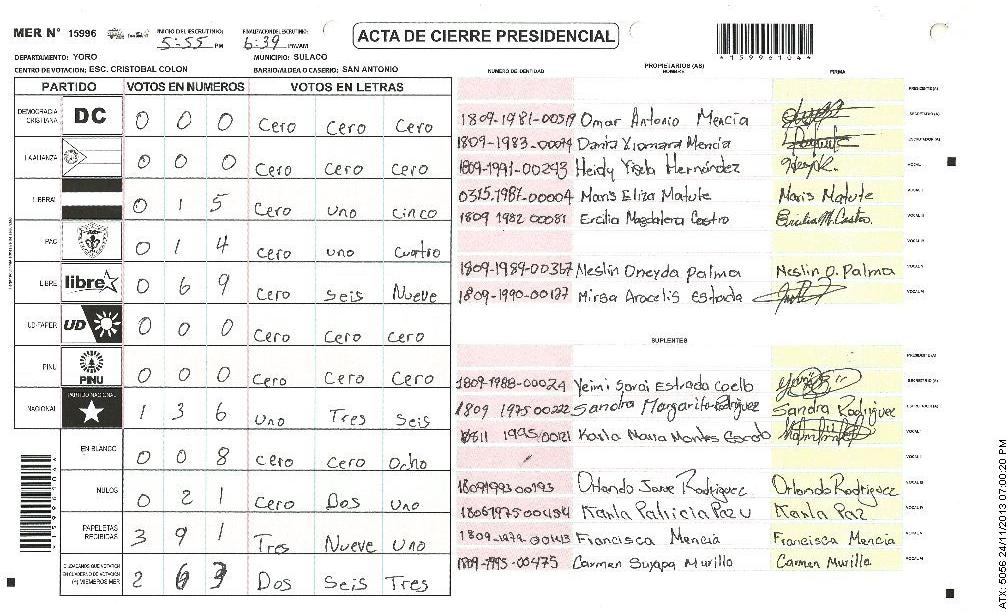 MER Nº 15996 INICIO DEL ESCRUTINIO: 5:55 PM FINALIZACION DEL ESCRUTINIO: 6:39 PM/AM
ACTA DE CIERRE PRESIDENCIAL
*15996104*
DEPARTAMENTO: YORO MUNICIPIO: SULACO
CENTRO DE VOTACION: ESC. CRISTOBAL COLON BARRIO/ALDEA O CASERIO: SAN ANTONIO
PARTIDO VOTOS EN NUMEROS VOTOS EN LETRAS
DEMOCRACIA CRISTIANA DC 0 0 0 Cero Cero Cero
LA ALIANZA 0 0 0 Cero Cero Cero
LIBERAL 0 1 5 Cero uno cinco
PAC 0 1 4 cero uno Cuatro
LIBRE libre 0 6 9 Cero Seis Nueve
UD-FAPER UD 0 0 0 Cero Cero cero
PINU PINU 0 0 0 Cero Cero Cero
NACIONAL PARTIDO NACIONAL 1 3 6 Uno Tres Seis
EN BLANCO 0 0 8 cero Cero Ocho
NULOS 0 2 1 Cero Dos Uno
PAPELETAS RECIBIDAS 3 9 1 Tres Nueve Uno
CIUDADANOS QUE VOTARON EN CUADERNO DE VOTACION (+) MIEMBROS MER 2 6 3 Dos Seis Tres
PROPIETARIOS (AS)
NUMERO DE IDENTIDAD NOMBRE FIRMA
PRESIDENTE (A)
1809-1981-00319 Omar Antonio Mencia SECRETARIO (A)
1809-1983-00094 Dania Xiomara Mencia ESCRUTADOR (A)
1809-1991-00293 Heidy Yisela Hernández VOCAL I
0315-1987-00004 Maris Eliza Matute Maris Matute VOCAL II
1809 1982 00081 Ercilia Magdalena Castro Ercilia M. Castro. VOCAL III
VOCAL IV
1809-1989-00367 Neslin Oneyda palma Neslin O. Palma VOCAL V
1809-1990-00127 Mirsa Aracelis Estrada VOCAL VI
SUPLENTES
PRESIDENTE (A)
1809-1988-00024 Yeimi Sarai Estrada Coello SECRETARIO (A)
1809 1975 00222 Sandra Margarita Rodriguez Sandra Rodriguez ESCRUTADOR (A)
1811 1995 00121 Karla Maria Montes VOCAL I
VOCAL II
1809199300193 Orlando Jose Rodriguez Orlando Rodriguez VOCAL III
1806197500484 Karla Patricia Paz Karla Paz VOCAL IV
1809-1979-00143 Francisca Mencia Francisca Mencia VOCAL V
1809-1995-00475 Carmen Suyapa Murillo Carmen Murillo VOCAL VI
*15996104*
ATX: 5056 24/11/2013 07:00:20 PM